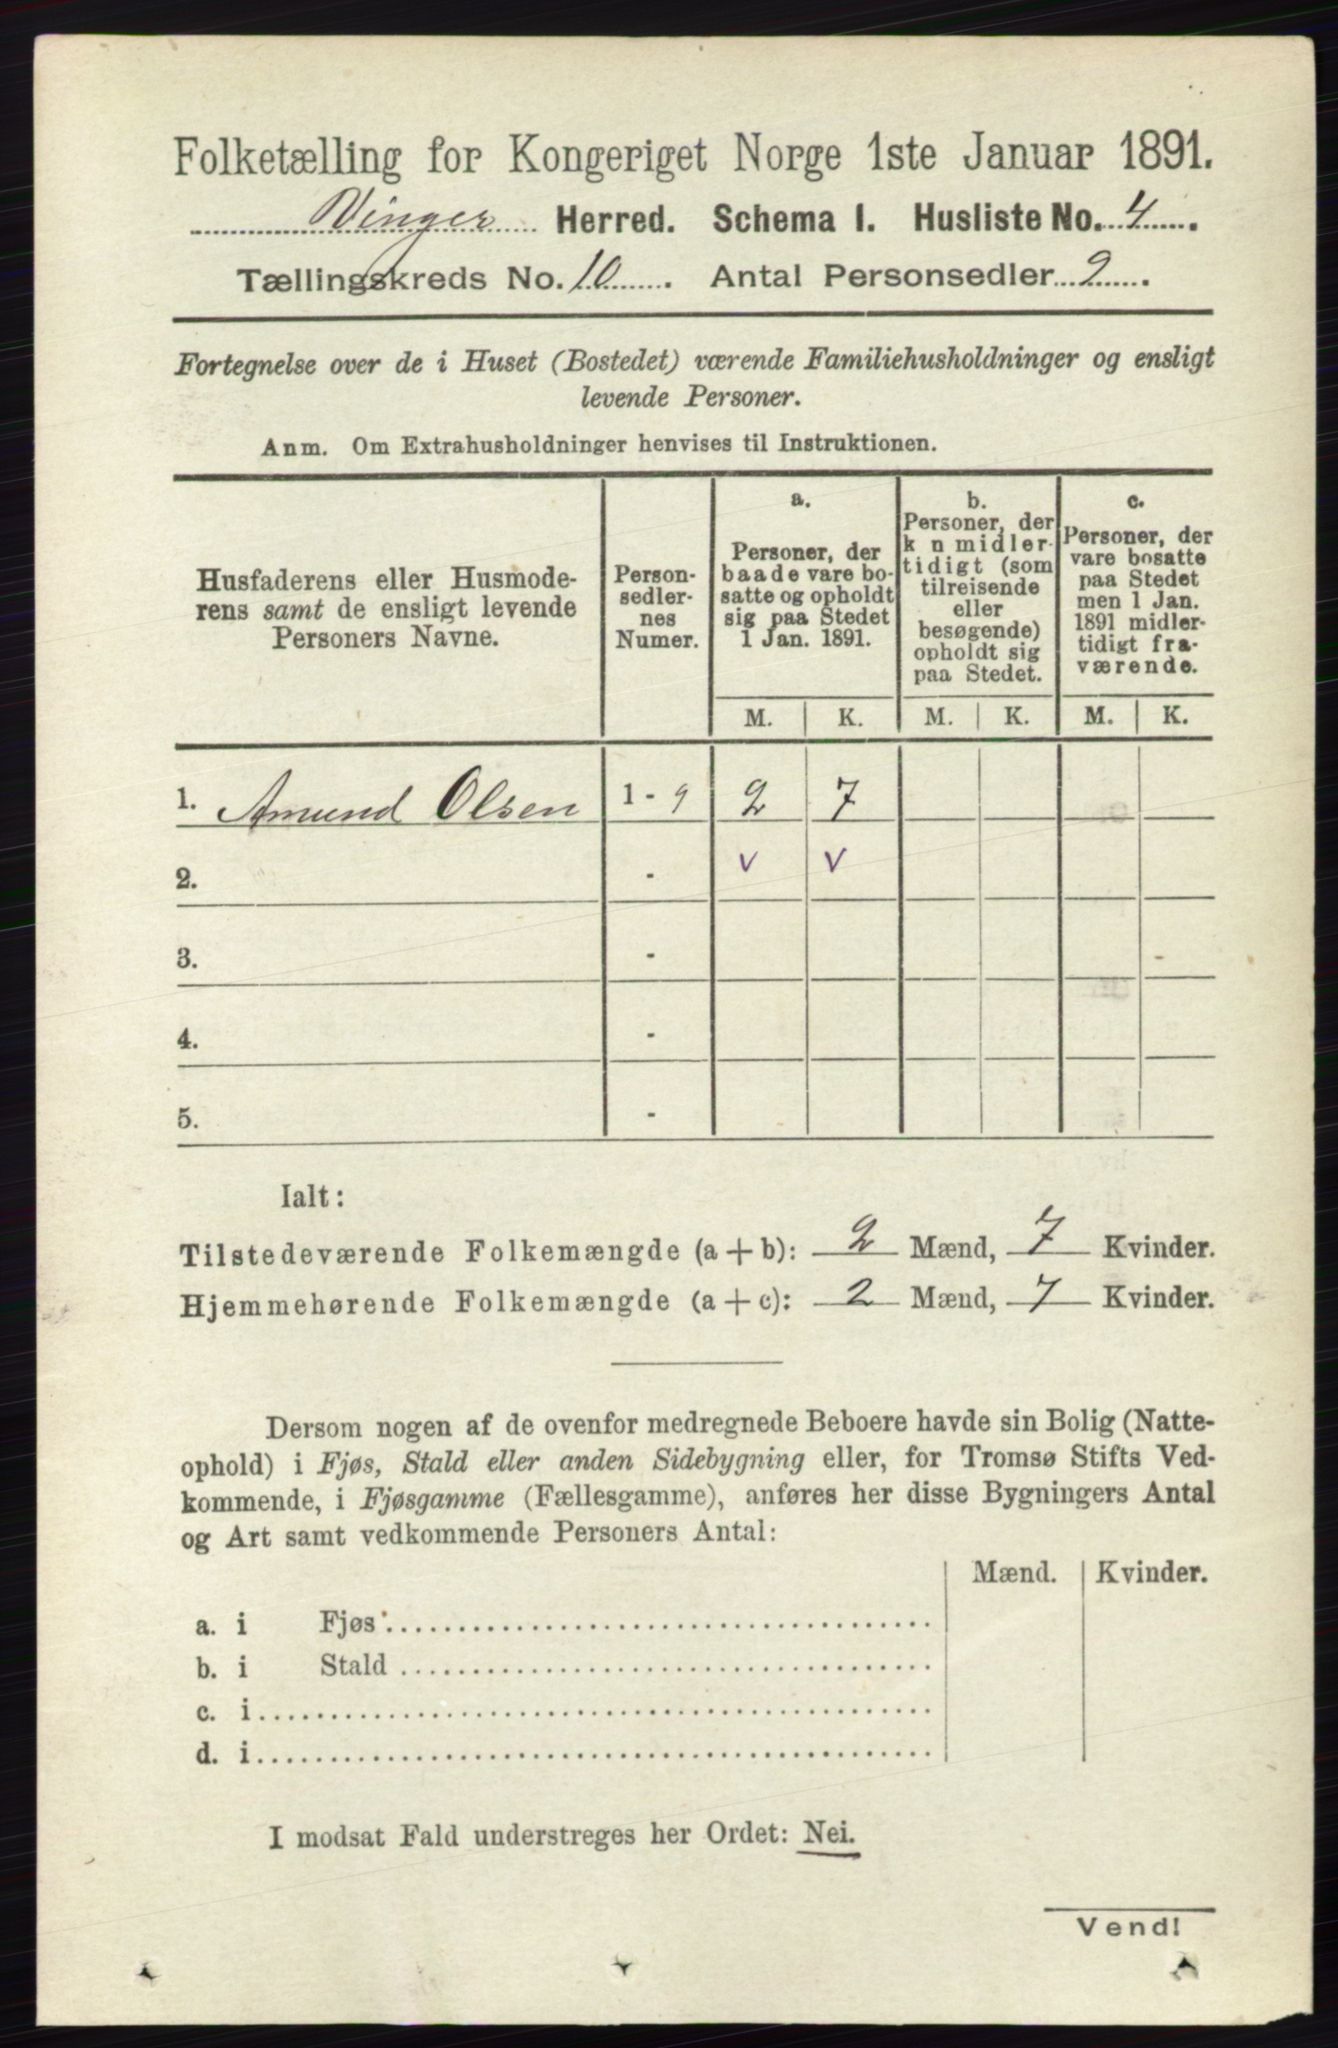 Folketælling for Kongeriget Norge 1ste Januar 1891.
Vinger Herred. Schema I. Husliste No. 4.
Tællingskreds No. 10. Antal Personsedler 9.
Fortegnelse over de i Huset (Bostedet) værende Familiehusholdninger og ensligt
levende Personer.
Anm. Om Extrahusholdninger henvises til Instruktionen.
Husfaderens eller Husmode-
rens samt de ensligt levende
Personers Navne.
Person-
sedler-
nes
Numer.
a.
Personer, der
baade vare bo-
satte og opholdt
sig paa Stedet
1 Jan. 1891.
b.
Personer, der
k n midler-
tidigt (som
tilreisende
eller
besøgende)
opholdt sig
paa Stedet.
c.
Personer, der
vare bosatte
paa Stedet
men 1 Jan.
1891 midler-
tidigt fra-
værende.
M. K. M. K. M. K.
1. Amund Olsen 1 - 9 2 7
2. - v v
3. -
4. -
5. -
Ialt:
Tilstedeværende Folkemængde (a + b): 2 Mænd, 7 Kvinder.
Hjemmehørende Folkemængde (a + c): 2 Mænd, 7 Kvinder.
Dersom nogen af de ovenfor medregnede Beboere havde sin Bolig (Natte-
ophold) i Fjøs, Stald eller anden Sidebygning eller, for Tromsø Stifts Ved-
kommende, i Fjøsgamme (Fællesgamme), anføres her disse Bygningers Antal
og Art samt vedkommende Personers Antal:
Mænd. Kvinder.
a. i Fjøs
b. i Stald
c. i
d. i
I modsat Fald understreges her Ordet: Nei.
Vend!